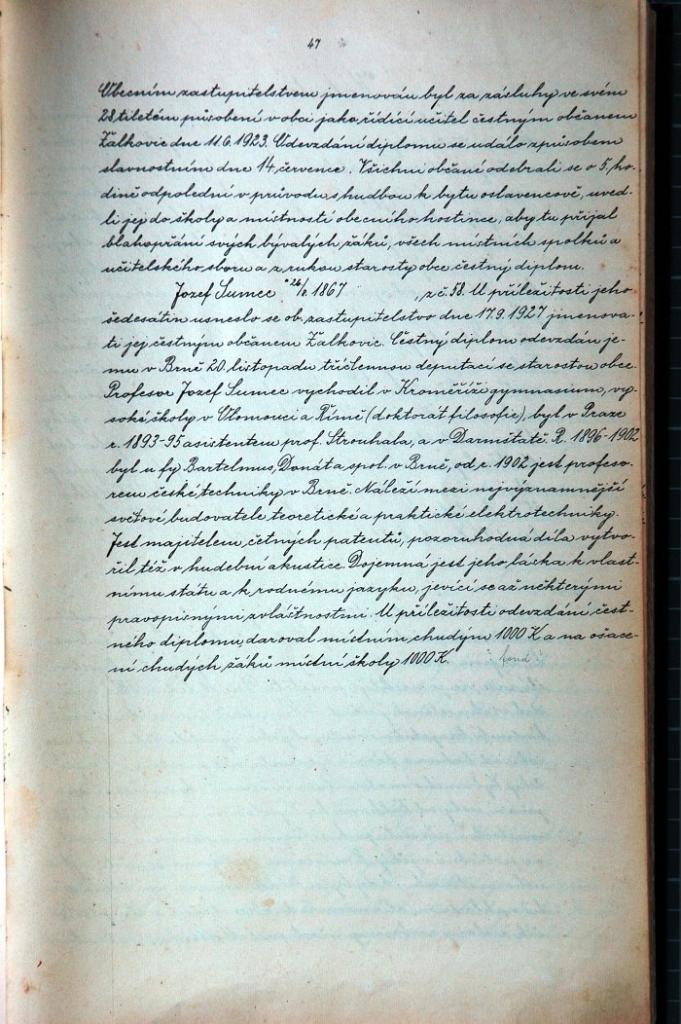 47
Obecním zastupitelstvem jmenován byl za zásluhy ve svém
28tiletém působení v obci jako řídící učitel čestným občanem
Žalkovic dne 11.6.1923. Odevzdání diplomu se událo způsobem
slavnostním dne 14. července. Všichni občané odebrali se o 5. ho-
dině odpolední v průvodu s hudbou k bytu oslavencově, uved-
li jej do školy a místností obecního hostince, aby tu přijal
blahopřání svých bývalých žáků, všech místních spolků a
učitelského sboru a z rukou starosty obce čestný diplom.
Jozef Sumec * 1867 , z č. 58. U příležitosti jeho
šedesátin usneslo se ob. zastupitelstvo dne 17.9.1927 jmenova-
ti jej čestným občanem Žalkovic. Čestný diplom odevzdán je-
mu v Brně 20. listopadu tříčlennou deputací se starostou obce.
Profesor Jozef Sumec vychodil v Kroměříži gymnasium, vy-
soké školy v Olomouci a Římě (doktorát filosofie), byl v Praze
r. 1893-95 asistentem prof. Strouhala, a v Darmstatě. R. 1896-1902
byl u fy Bartelmus, Donát a spol. v Brně, od r. 1902 jest profeso-
rem české techniky v Brně. Náleží mezi nejvýznamnější
světové budovatele teoretické a praktické elektrotechniky.
Jest majitelem četných patentů, pozoruhodná díla vytvo-
řil též v hudební akustice. Dojemná jest jeho láska k vlast-
nímu státu a k rodnému jazyku, jevící se až některými
pravopisnými zvláštnostmi. U příležitosti odevzdání čest-
ného diplomu daroval místním chudým 1000 K a na ošace-
ní chudých žáků místní školy 1000 K. fond